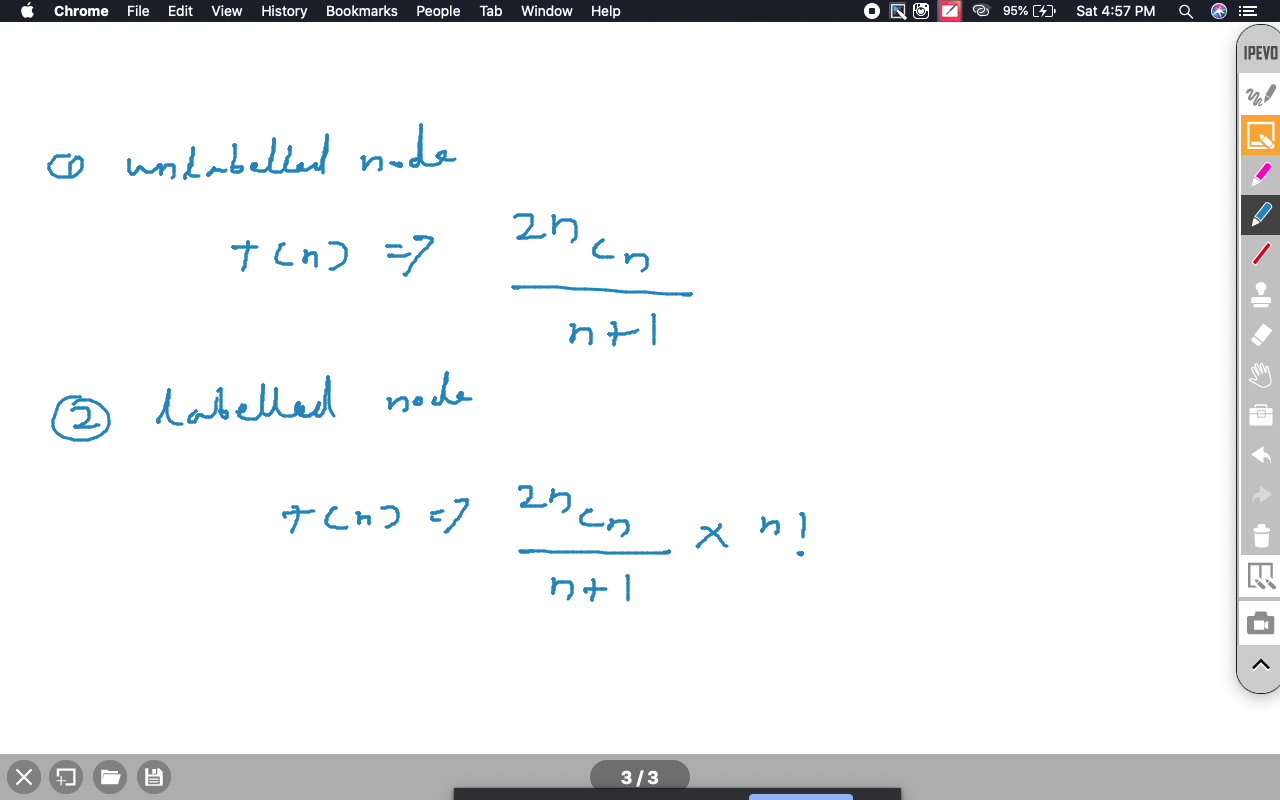 Chrome File Edit View History Bookmarks People Tab Window Help 95% Sat 4:57 PM
IPEVO
① unlabelled node
T(n) => 2nCn
n+1
② labelled node
T(n) => 2nCn × n!
n+1
3 / 3